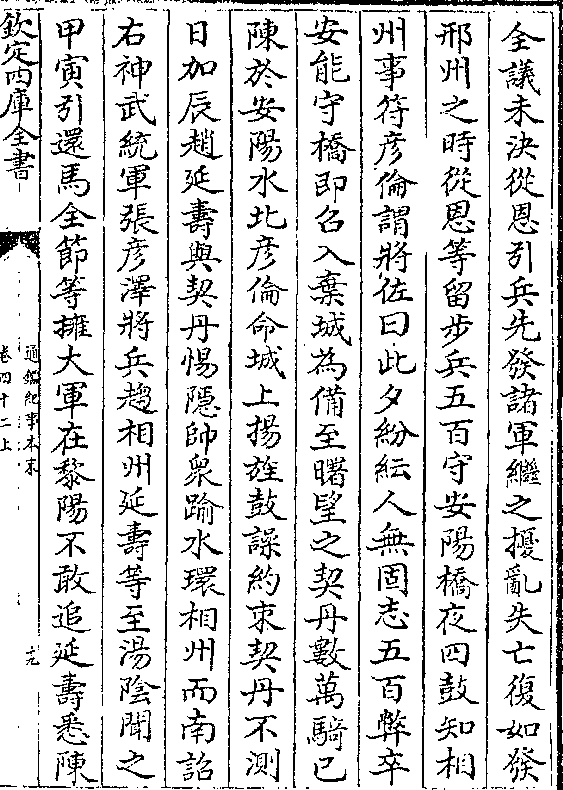 全議未決從恩引兵先發諸軍繼之擾亂失亡復如發
邢州之時從恩等留步兵五百守安陽橋夜四鼓知相
州事符彦倫謂將佐曰此夕紛紜人無固志五百弊卒
安能守橋即召入棄城為備至曙望之契丹數萬騎已
陳於安陽水北彦倫命城上揚旌鼓譟約束契丹不測
日加辰趙延壽與契丹惕隱帥衆踰水環相州而南詔
右神武統軍張彦澤將兵趨相州延壽等至湯陰聞之
甲寅引還馬全節等擁大軍在黎陽不敢追延壽悉陳
欽定四庫全書
通鑑紀事本末
卷四十二上
十九